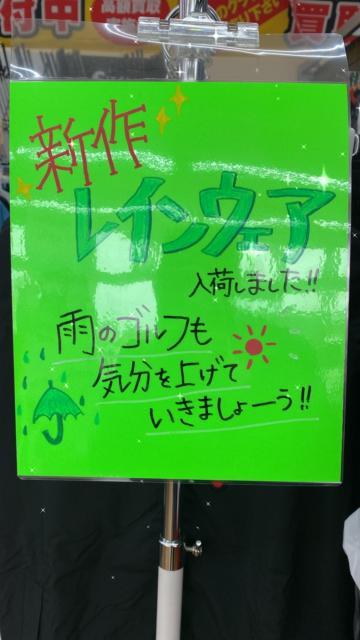 付中
高額買取
買取
新作
レインウェア
入荷しました!!
雨のゴルフも
気分を上げて
いきましょーう!!